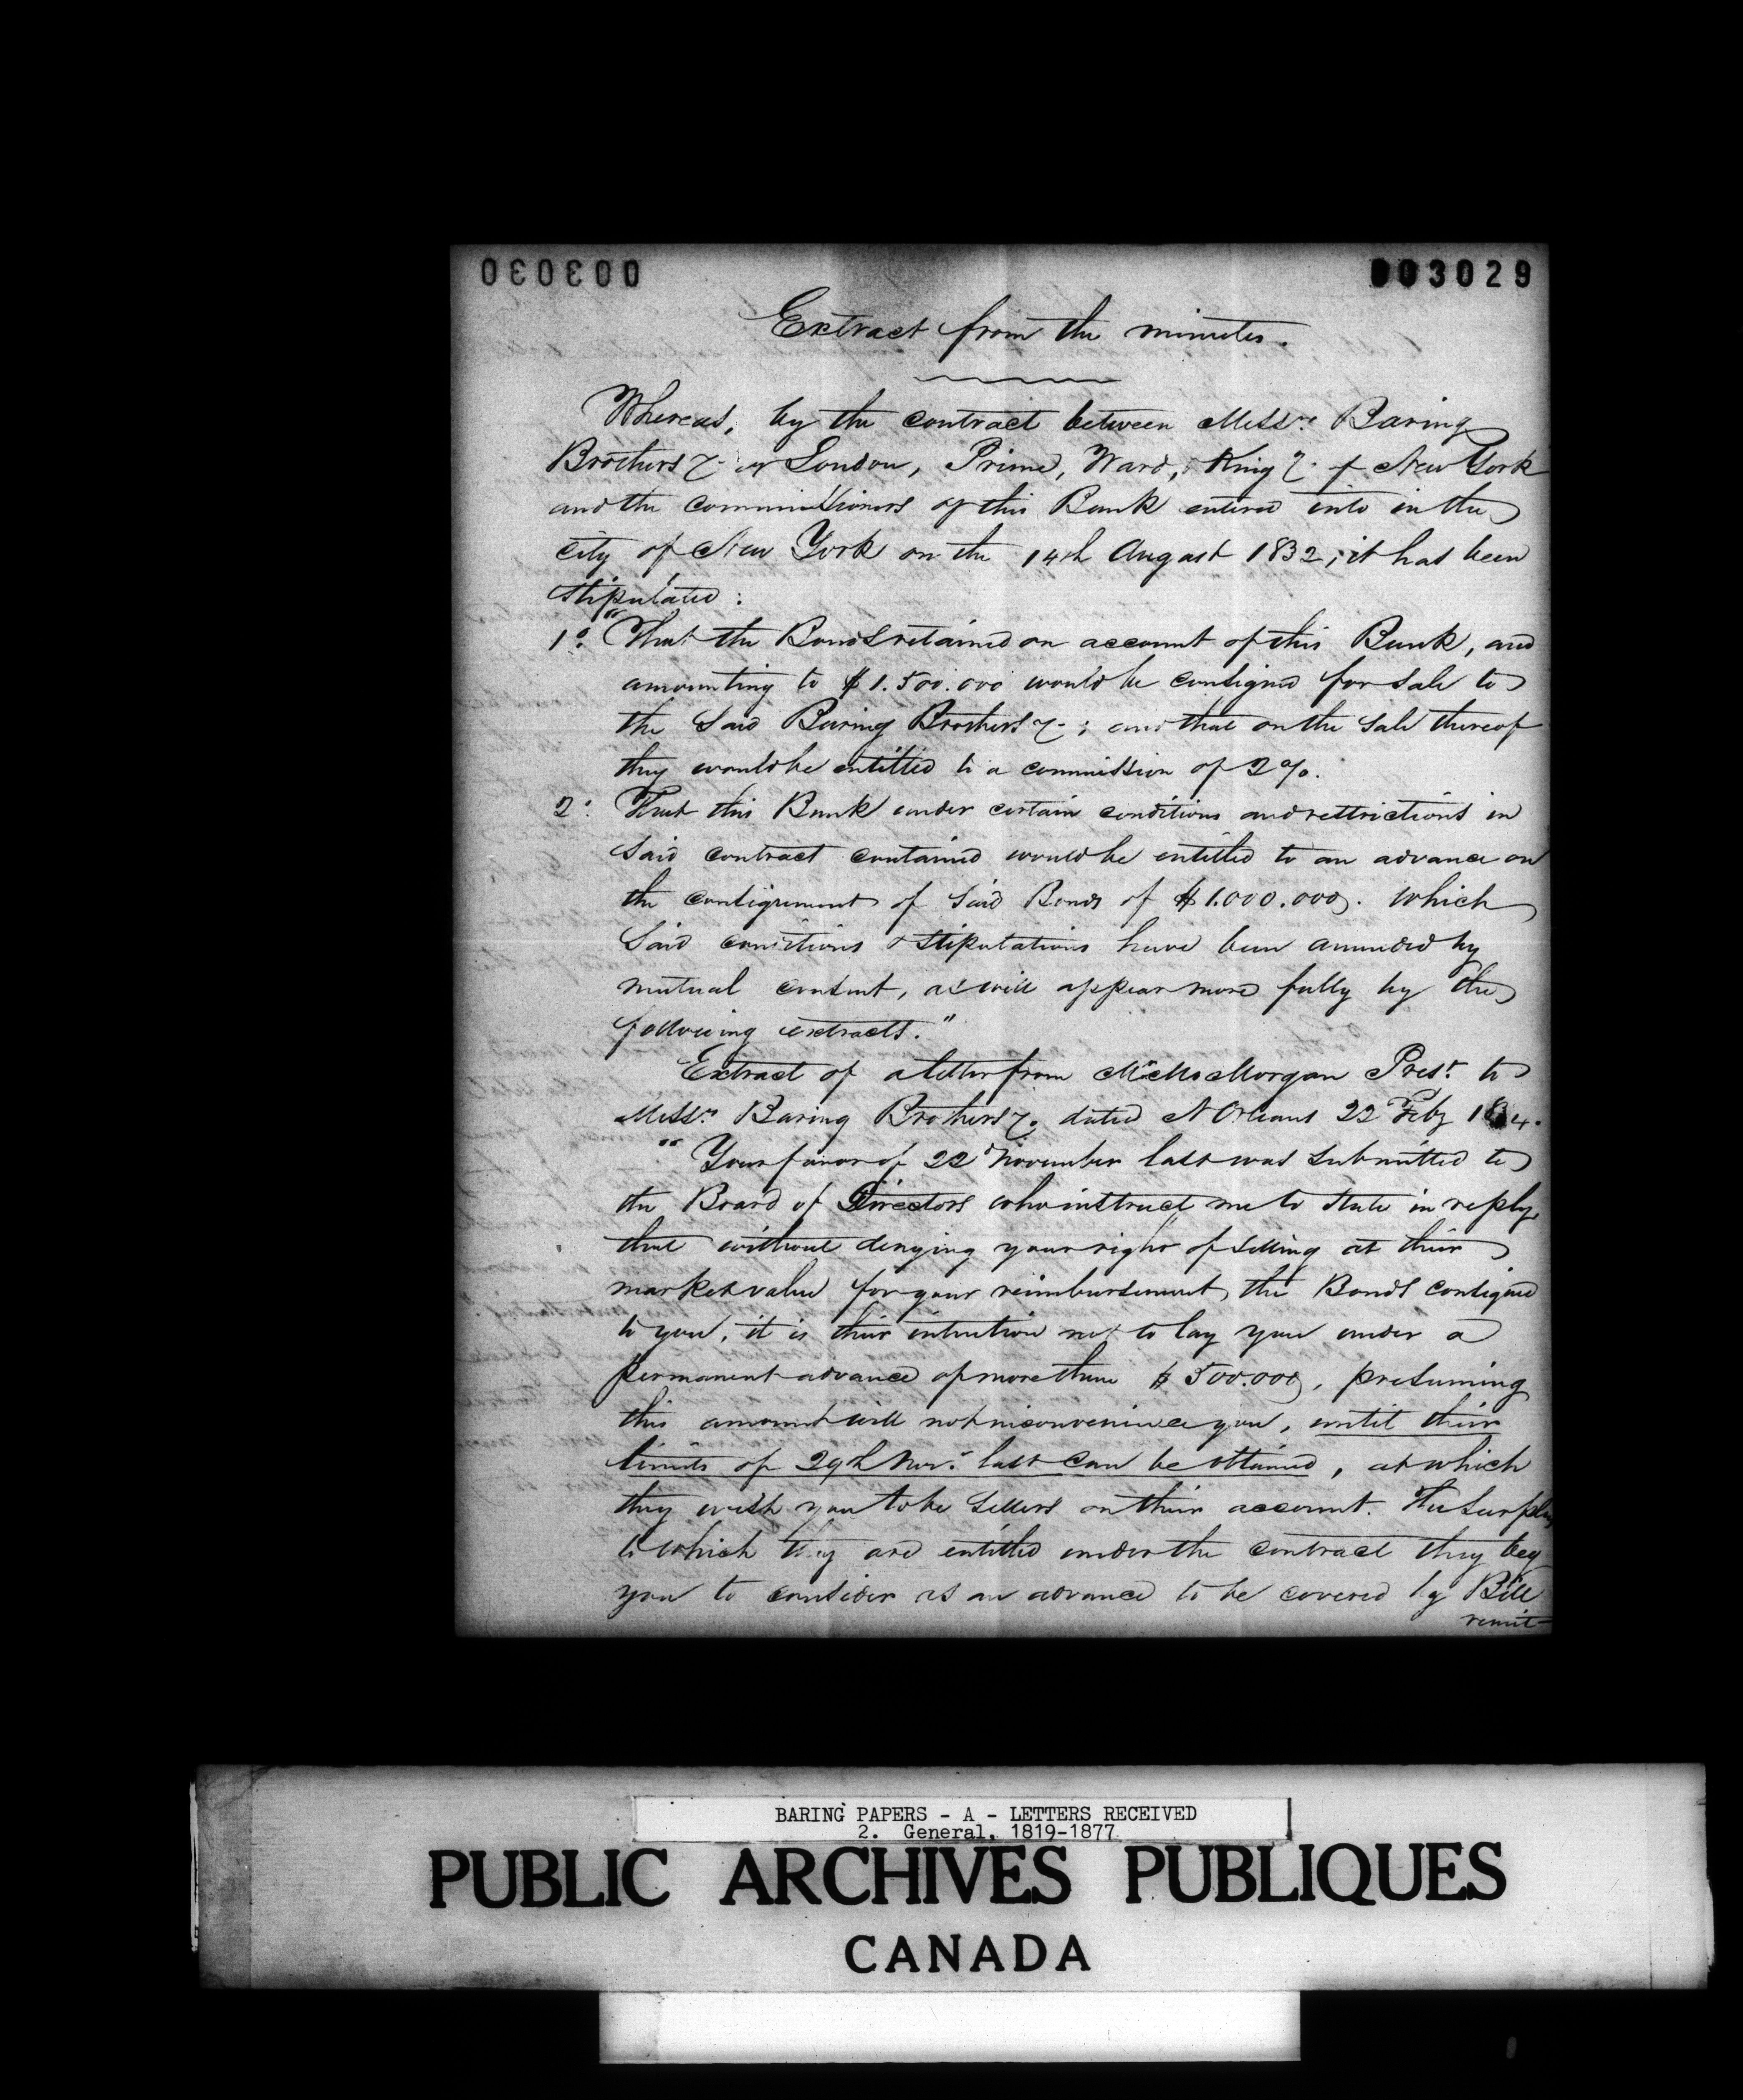 003029
Extract from the minutes.
Whereas, by the contract between Messrs. Baring
Brothers &. of London, Prime, Ward, King &. of New York
and the commissioners of this Bank entered into in the
city of New York on the 14th August 1832, it has been
stipulated:
1o. "That the Bonds retained on account of this Bank, and
amounting to $1.500.000 would be consigned for sale to
the said Baring Brothers &.; and that on the sale thereof
they would be entitled to a commission of 2%.
2o. That this Bank under certain conditions and restrictions in
said contract contained would be entitled to an advance on
the consignment of said Bonds of $1.000.000. which
said conditions & stipulations have been amended by
mutual consent, as will appear more fully by the
following extracts."
Extract of a letter from Mr. Morgan Prest. to
Messrs. Baring Brothers &. dated N Orleans 22 Feby 1834.
"Your favor of 22d November last was submitted to
the Board of Directors who instruct me to state in reply,
that without denying your right of selling at their
market value for your reimbursement, the Bonds consigned
to you, it is their intention not to lay you under a
permanent advance of more than $500.000, presuming
this amount will not inconvenience you, until their
limits of 29th Nov. last can be attained, at which
they wish you to be sellers on their account. The surplus
to which they are entitled under the contract they beg
you to consider as an advance to be covered by Bill
remit-
BARING PAPERS - A - LETTERS RECEIVED
2. General, 1819-1877
PUBLIC ARCHIVES PUBLIQUES
CANADA